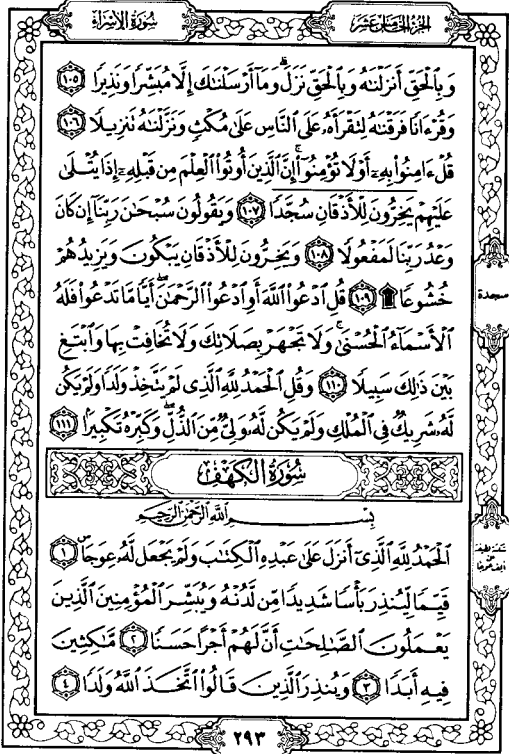 الجزء الخامس عشر
سورة الإسراء
وَبِالْحَقِّ أَنزَلْنَاهُ وَبِالْحَقِّ نَزَلَ ۗ وَمَا أَرْسَلْنَاكَ إِلَّا مُبَشِّرًا وَنَذِيرًا ١٠٥
وَقُرْءَانًا فَرَقْنَاهُ لِتَقْرَأَهُ عَلَى النَّاسِ عَلَىٰ مُكْثٍ وَنَزَّلْنَاهُ تَنزِيلًا ١٠٦
قُلْ ءَامِنُوا بِهِ أَوْ لَا تُؤْمِنُوا ۚ إِنَّ الَّذِينَ أُوتُوا الْعِلْمَ مِن قَبْلِهِ إِذَا يُتْلَىٰ
عَلَيْهِمْ يَخِرُّونَ لِلْأَذْقَانِ سُجَّدًا ١٠٧ وَيَقُولُونَ سُبْحَانَ رَبِّنَا إِن كَانَ
وَعْدُ رَبِّنَا لَمَفْعُولًا ١٠٨ وَيَخِرُّونَ لِلْأَذْقَانِ يَبْكُونَ وَيَزِيدُهُمْ
خُشُوعًا ۩ ١٠٩ قُلِ ادْعُوا اللَّهَ أَوِ ادْعُوا الرَّحْمَٰنَ ۖ أَيًّا مَّا تَدْعُوا فَلَهُ
الْأَسْمَاءُ الْحُسْنَىٰ ۚ وَلَا تَجْهَرْ بِصَلَاتِكَ وَلَا تُخَافِتْ بِهَا وَابْتَغِ
بَيْنَ ذَٰلِكَ سَبِيلًا ١١٠ وَقُلِ الْحَمْدُ لِلَّهِ الَّذِي لَمْ يَتَّخِذْ وَلَدًا وَلَمْ يَكُن
لَّهُ شَرِيكٌ فِي الْمُلْكِ وَلَمْ يَكُن لَّهُ وَلِيٌّ مِّنَ الذُّلِّ ۖ وَكَبِّرْهُ تَكْبِيرًا ١١١
سجدة
سورة الكهف
بِسْمِ اللَّهِ الرَّحْمَٰنِ الرَّحِيمِ
الْحَمْدُ لِلَّهِ الَّذِي أَنزَلَ عَلَىٰ عَبْدِهِ الْكِتَابَ وَلَمْ يَجْعَل لَّهُ عِوَجًا ۜ ١
قَيِّمًا لِّيُنذِرَ بَأْسًا شَدِيدًا مِّن لَّدُنْهُ وَيُبَشِّرَ الْمُؤْمِنِينَ الَّذِينَ
يَعْمَلُونَ الصَّالِحَاتِ أَنَّ لَهُمْ أَجْرًا حَسَنًا ٢ مَّاكِثِينَ
فِيهِ أَبَدًا ٣ وَيُنذِرَ الَّذِينَ قَالُوا اتَّخَذَ اللَّهُ وَلَدًا ٤
سكتة لطيفة
٢٩٣